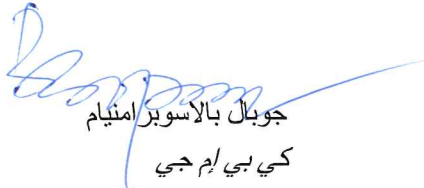 جوبال بالاسوبرامنيام
كي بي إم جي